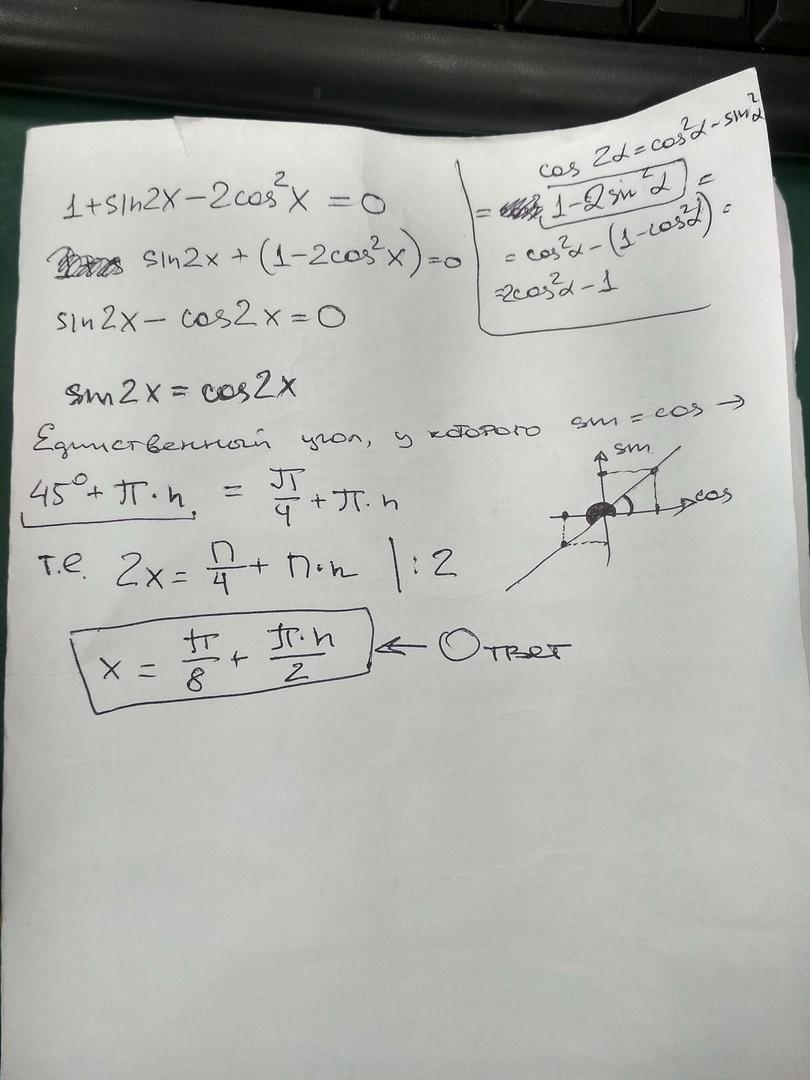 1+sin2x−2cos²x = 0
sin2x + (1−2cos²x)=0
sin2x − cos2x = 0
sin2x = cos2x
cos 2α = cos²α − sin²α
= 1−2sin²α =
= cos²α − (1−cos²α) =
=2cos²α − 1
Единственный угол, у которого sin = cos →
45° + π·n = π/4 + π·n
sin
cos
т.е. 2x = π/4 + π·n |:2
x = π/8 + π·n/2 ← Ответ